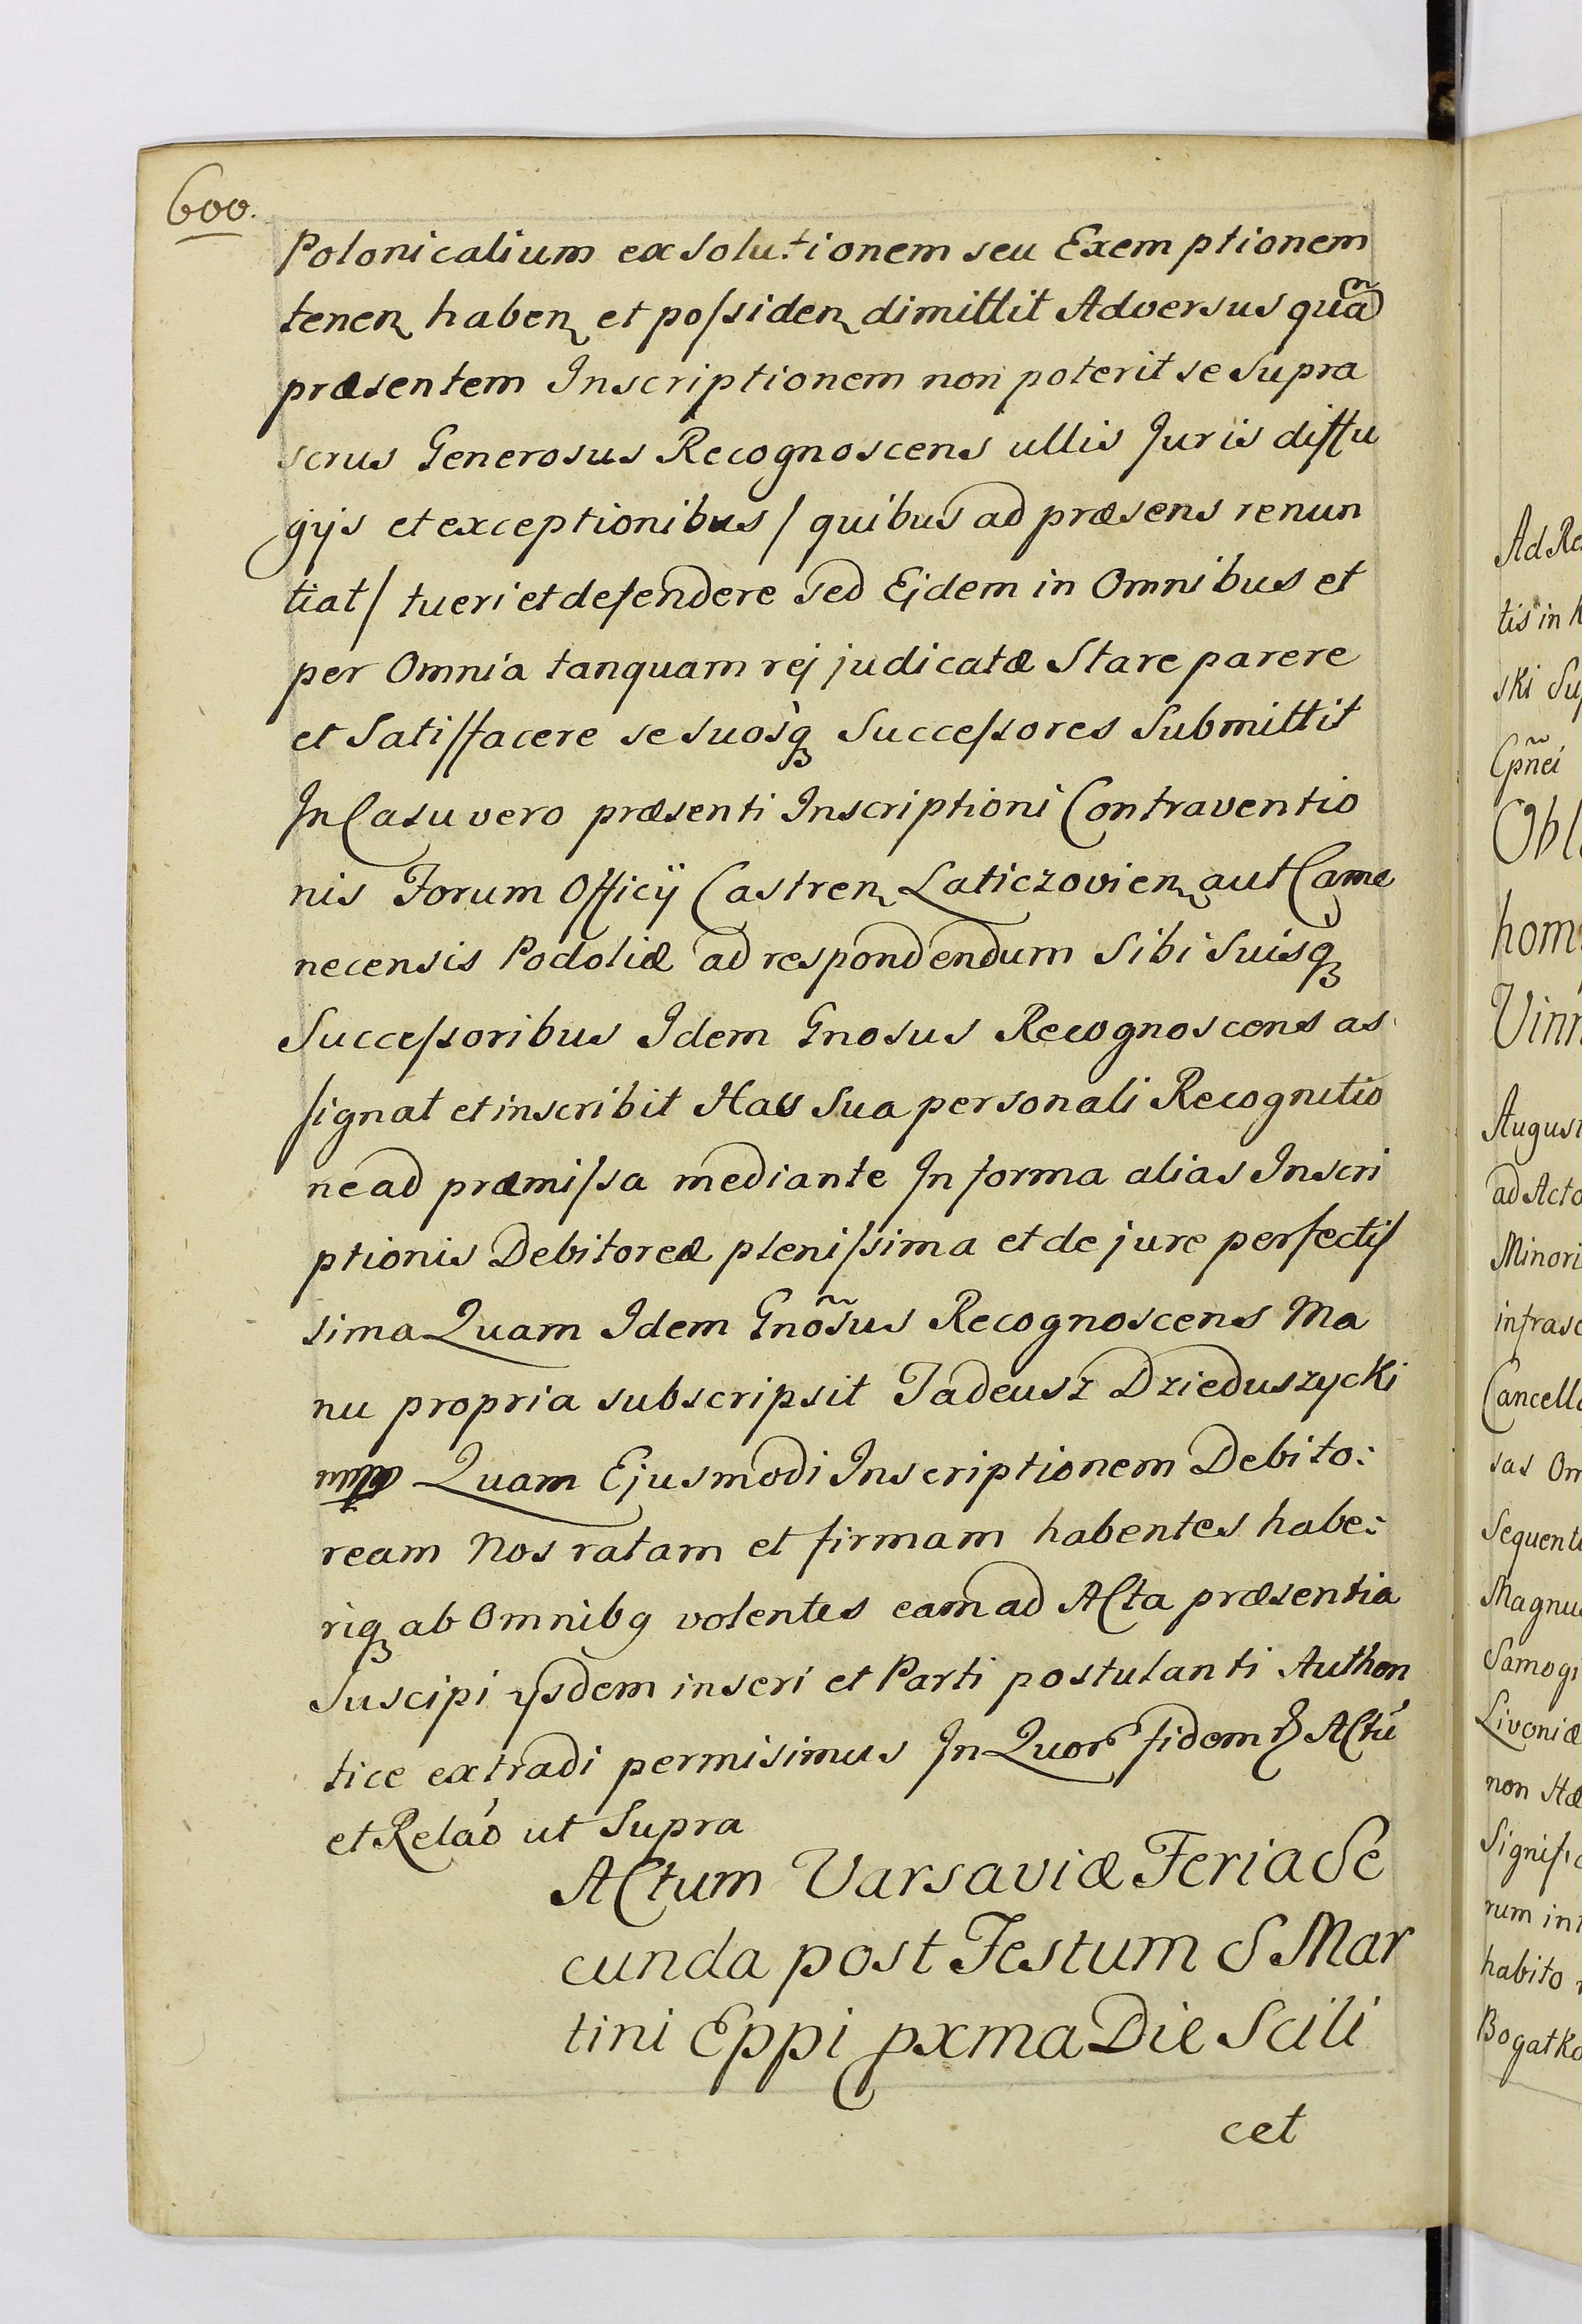 600.
Polonicalium exsolutionem seu Exemptionem
tenen haben et possiden dimittit Adversus quã
præsentem Inscriptionem non poterit se supra
scrus Generosus Recognoscens ullis Juris diffu
gijs et exceptionibus / quibus ad præsens renun
tiat / tueri et defendere sed Ejdem in Omnibus et
per Omnia tanquam rej judicatæ Stare parere
et Satisfacere se suosq Successores Submittit
In Casu vero præsenti Inscriptioni Contraventio
nis Forum Officÿ Castren Laticzovien aut Came
necensis Podoliæ ad respondendum Sibi Suisq
Successoribus Idem Gnosus Recognoscens as
signat et inscribit Hac Sua personali Recognitio
ne ad præmissa mediante In forma alias Inscri
ptionis Debitoreæ plenissima et de jure perfectis
sima Quam Idem Gnõsus Recognoscens Ma
nu propria subscripsit Tadeusz Dzieduszycki
mpp Quam Ejusmodi Inscriptionem Debito:
ream Nos ratam et firmam habentes habe:
riq ab Omnibq volentes eam ad Acta præsentia
Suscipi ijsdem inseri et Parti postulanti Authen
tice extradi permisimus In Quor fidem Actú
et Relaó ut Supra
Actum Varsaviæ Feria Se
cunda post Festum S Mar
tini Eppi pxma Die Scili
cet
Ad Re
tis in K
ski Sup
Cpñei
Obl
hom
Vinn
August
ad Acta
Minori
infrasc
Cancella
sas Om
Sequenti
Magnus
Samogi
Livoniæ
non Hæ
Signific
rum int
habito
Bogatko